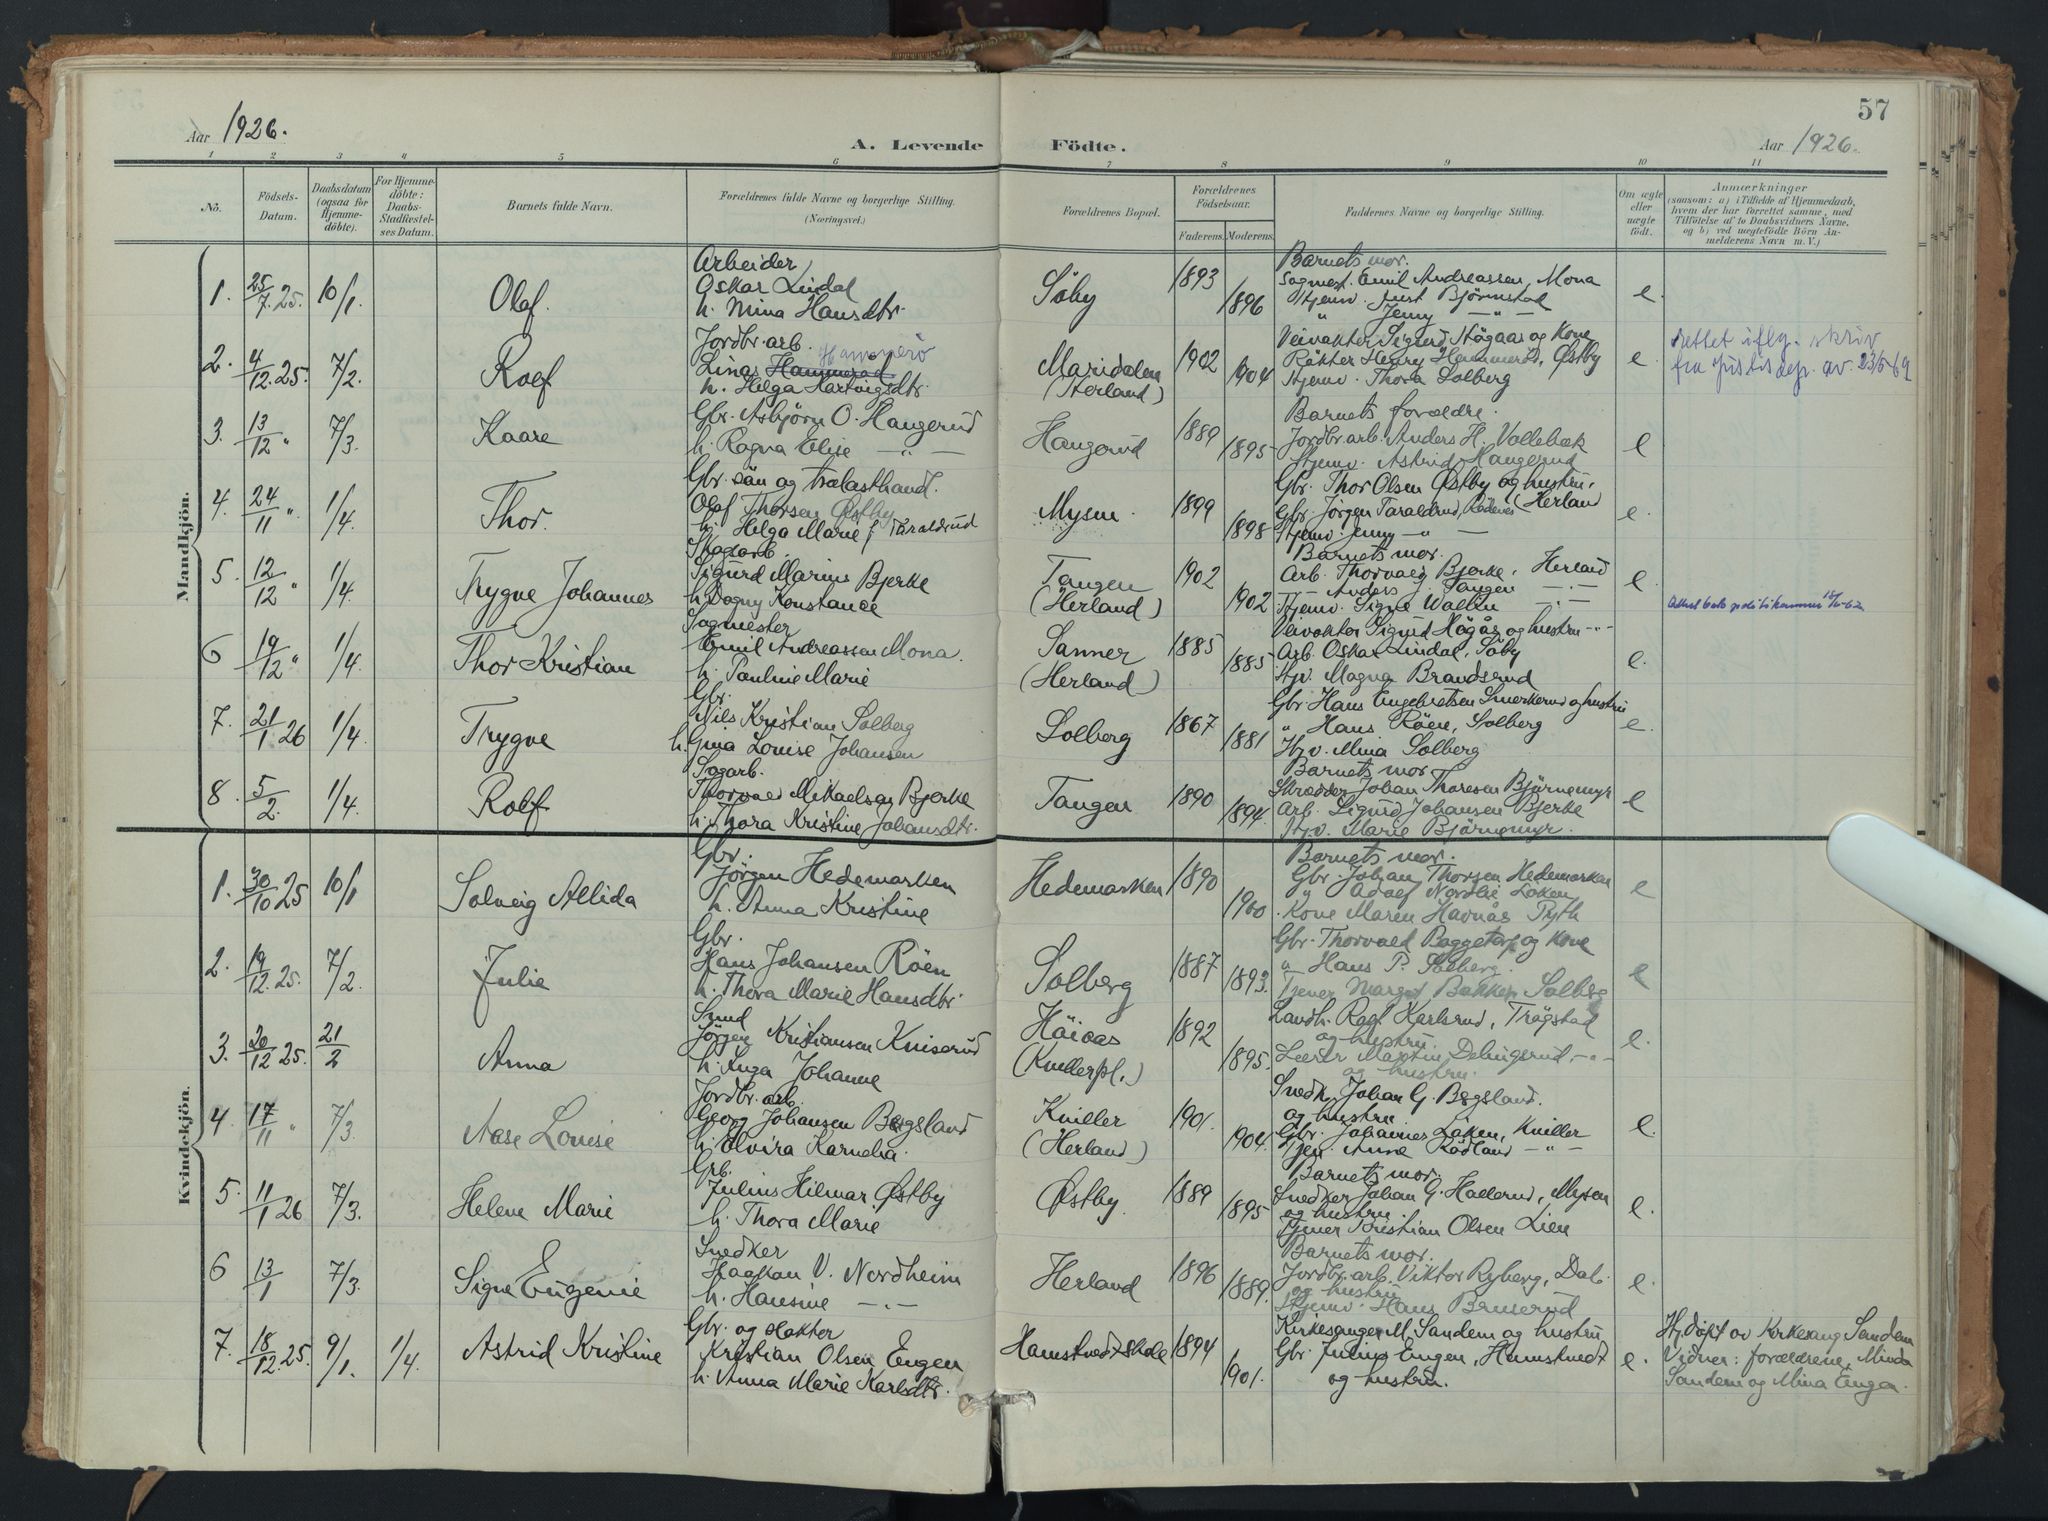 57
Aar 1926.
A. Levende Födte.
Aar 1926.
1 2 3 4 5 6 7 8 9 10 11
No.
Födsels-Datum.
Daabsdatum (ogsaa for Hjemme-döbte).
For Hjemme-döbte: Daabs-Stadfæstel-ses Datum.
Barnets fulde Navn.
Forældrenes fulde Navne og borgerlige Stilling. (Næringsvei.)
Forældrenes Bopæl.
Forældrenes Födselsaar.
Faderens. Moderens.
Faddernes Navne og borgerlige Stilling.
Om ægte eller uægte födt.
Anmærkninger
(saasom: a) i Tilfælde af Hjemmedaab, hvem der har forrettet samme, med Tilföielse af to Daabsvidners Navne, og b) ved uægtefödte Börn An-melderens Navn m. V.)
Mandkjön.
1. 25/7.25. 10/1. Olaf.
Arbeider
Oskar Lindal
h. Mina Hansdtr.
Söby 1893 1896
Barnets mor.
Sagmest. Emil Andreassen, Mona
Hjemv. Just Björnstad
" Jenny — " —
e.
2. 4/12.25. 7/2. Rolf
Jordbr. arb.
Linas Hammerad Hammerö
h. Helga Hartvigsdtr.
Maridalen (Herland) 1902 1904
Veivokter Sigurd Högaas og Kone
Røkter Henry Hammeröd, Østby
Hjemv. Thora Solberg
e.
rettet iflg. skriv fra justisdep. av. 23/5-69
3. 13/12 " 7/3. Kaare
Gbr. Asbjörn O. Haugerud
h. Ragna Elise — " —
Haugerud 1889 1895
Barnets forældre.
Jordbr. arb. Anders H. Vallebæk
Hjemv. Astrid Haugerud
e
4. 24/11 " 1/4. Thor.
Gbr. sön og trælasthandl.
Olaf Thorsen Østby
h. Helga Marie f. Taraldrud
Mysen. 1899 1898
Gbr. Thor Olsen Østby og hustru, (Herland
Gbr. Jörgen Taraldrud, Rödenes
Hjemv. Jenny — " —
e.
5. 12/12 " 1/4. Trygve Johannes
Skogsarb.
Sigurd Marius Bjerke
h. Dagny Konstance
Tangen (Herland) 1902 1902
Barnets mor.
Arb. Thorvald Bjerke, Herland
— Anders J. Tangen — . —
Hjemv. Signe Wallin — . —
e.
6 19/12 " 1/4. Thor Kristian
Sagmester
Emil Andreassen Mona.
h. Pauline Marie
Sanner (Herland) 1885 1885
Veivokter Sigurd Högås og hustru - " -
Arb. Oskar Lindal, Söby
Hjv. Magna Brandsrud
e.
7. 21/1 26 1/4. Trygve
Gbr.
Nils Kristian Solberg
h. Gina Louise Johansen
Solberg 1867 1881
Gbr. Hans Engebretsen Smerkerud og hustru
" Hans Röen, Solberg
Hjv. Mina Solberg
e.
8. 5/2. 1/4. Rolf
Sagarb.
Thorvald Mikaelsen Bjerke
h. Thora Kristine Johansdtr.
Tangen 1890 1894
Barnets mor.
Skrædder Johan Thoresen Björnemyr
Arb. Sigurd Johansen Bjerke
Hjv. Marie Björnemyr.
e
Kvindekjön.
1. 30/10 25 10/1 Solveig Allida
Gbr.
Jörgen Hedemarken
h. Anna Kristine
Hedemarken 1890 1900
Barnets mor.
Gbr. Johan Thorsen Hedemarken
" Adolf Nordlie Løken
Kone Maren Havnås Pyth
e
2. 19/12.25. 7/2. Julie
Gbr.
Hans Johansen Röen
h. Thora Marie Hansdtr.
Solberg 1887 1893.
Gbr. Thorvald Baggetorp og Kone
" Hans P. Solberg.
Tjener Margit Bakken Solberg
e
3. 20/12 25. 21/2 Anna
Smed
Jörgen Kristiansen Kniserud
h. Inga Johanne
Häiaas (Knillerpl.) 1892 1895.
Landh. Ragn. Karlsrud, Trögstad
og hustru.
Martin Delingsrud, - " -
og hustru.
e.
4. 17/11 " 7/3. Aase Louise
Jordbr. arb.
Georg Johansen Bøgsland
h. Elvira Karnelia.
Kniller (Herland) 1901. 1904.
Snedk. Johan G. Bøgsland.
og hustru
Gbr. Johannes Løken, Kniller
Tjen. Anne Rödland — " —
e.
5. 11/1 26 7/3. Helene Marie
Grb.
Julius Hilmar Østby
h. Thora Marie
Østby. 1889 1895
Barnets mor.
Snedker Johan G. Hallerud, Mysen
og hustru.
Tjener Kristian Olsen Lien
e.
6 13/1 7/3. Signe Eugenie
Snedker
Haakon V. Nordheim
h. Hansine — . —
Herland 1896 1889.
Barnets mor.
Jordbr. arb. Viktor Ryberg, Dal.
og hustru
Hjemv. Hans Bruserud
e.
7. 18/12.25. 9/1. 1/4. Astrid Kristine
Gbr. og slakter
Kristian Olsen Engen
h. Anna Marie Karlsdtr.
Hamstvedt skole 1894 1901.
Kirkesanger M. Sandem og hustru,
Gbr. Julius Engen, Hamstvedt
og hustru.
e.
Hj. döpt av Kirkesang. Sandem
Vidner: forældrene, Minda
Sandem og Mina Engen.